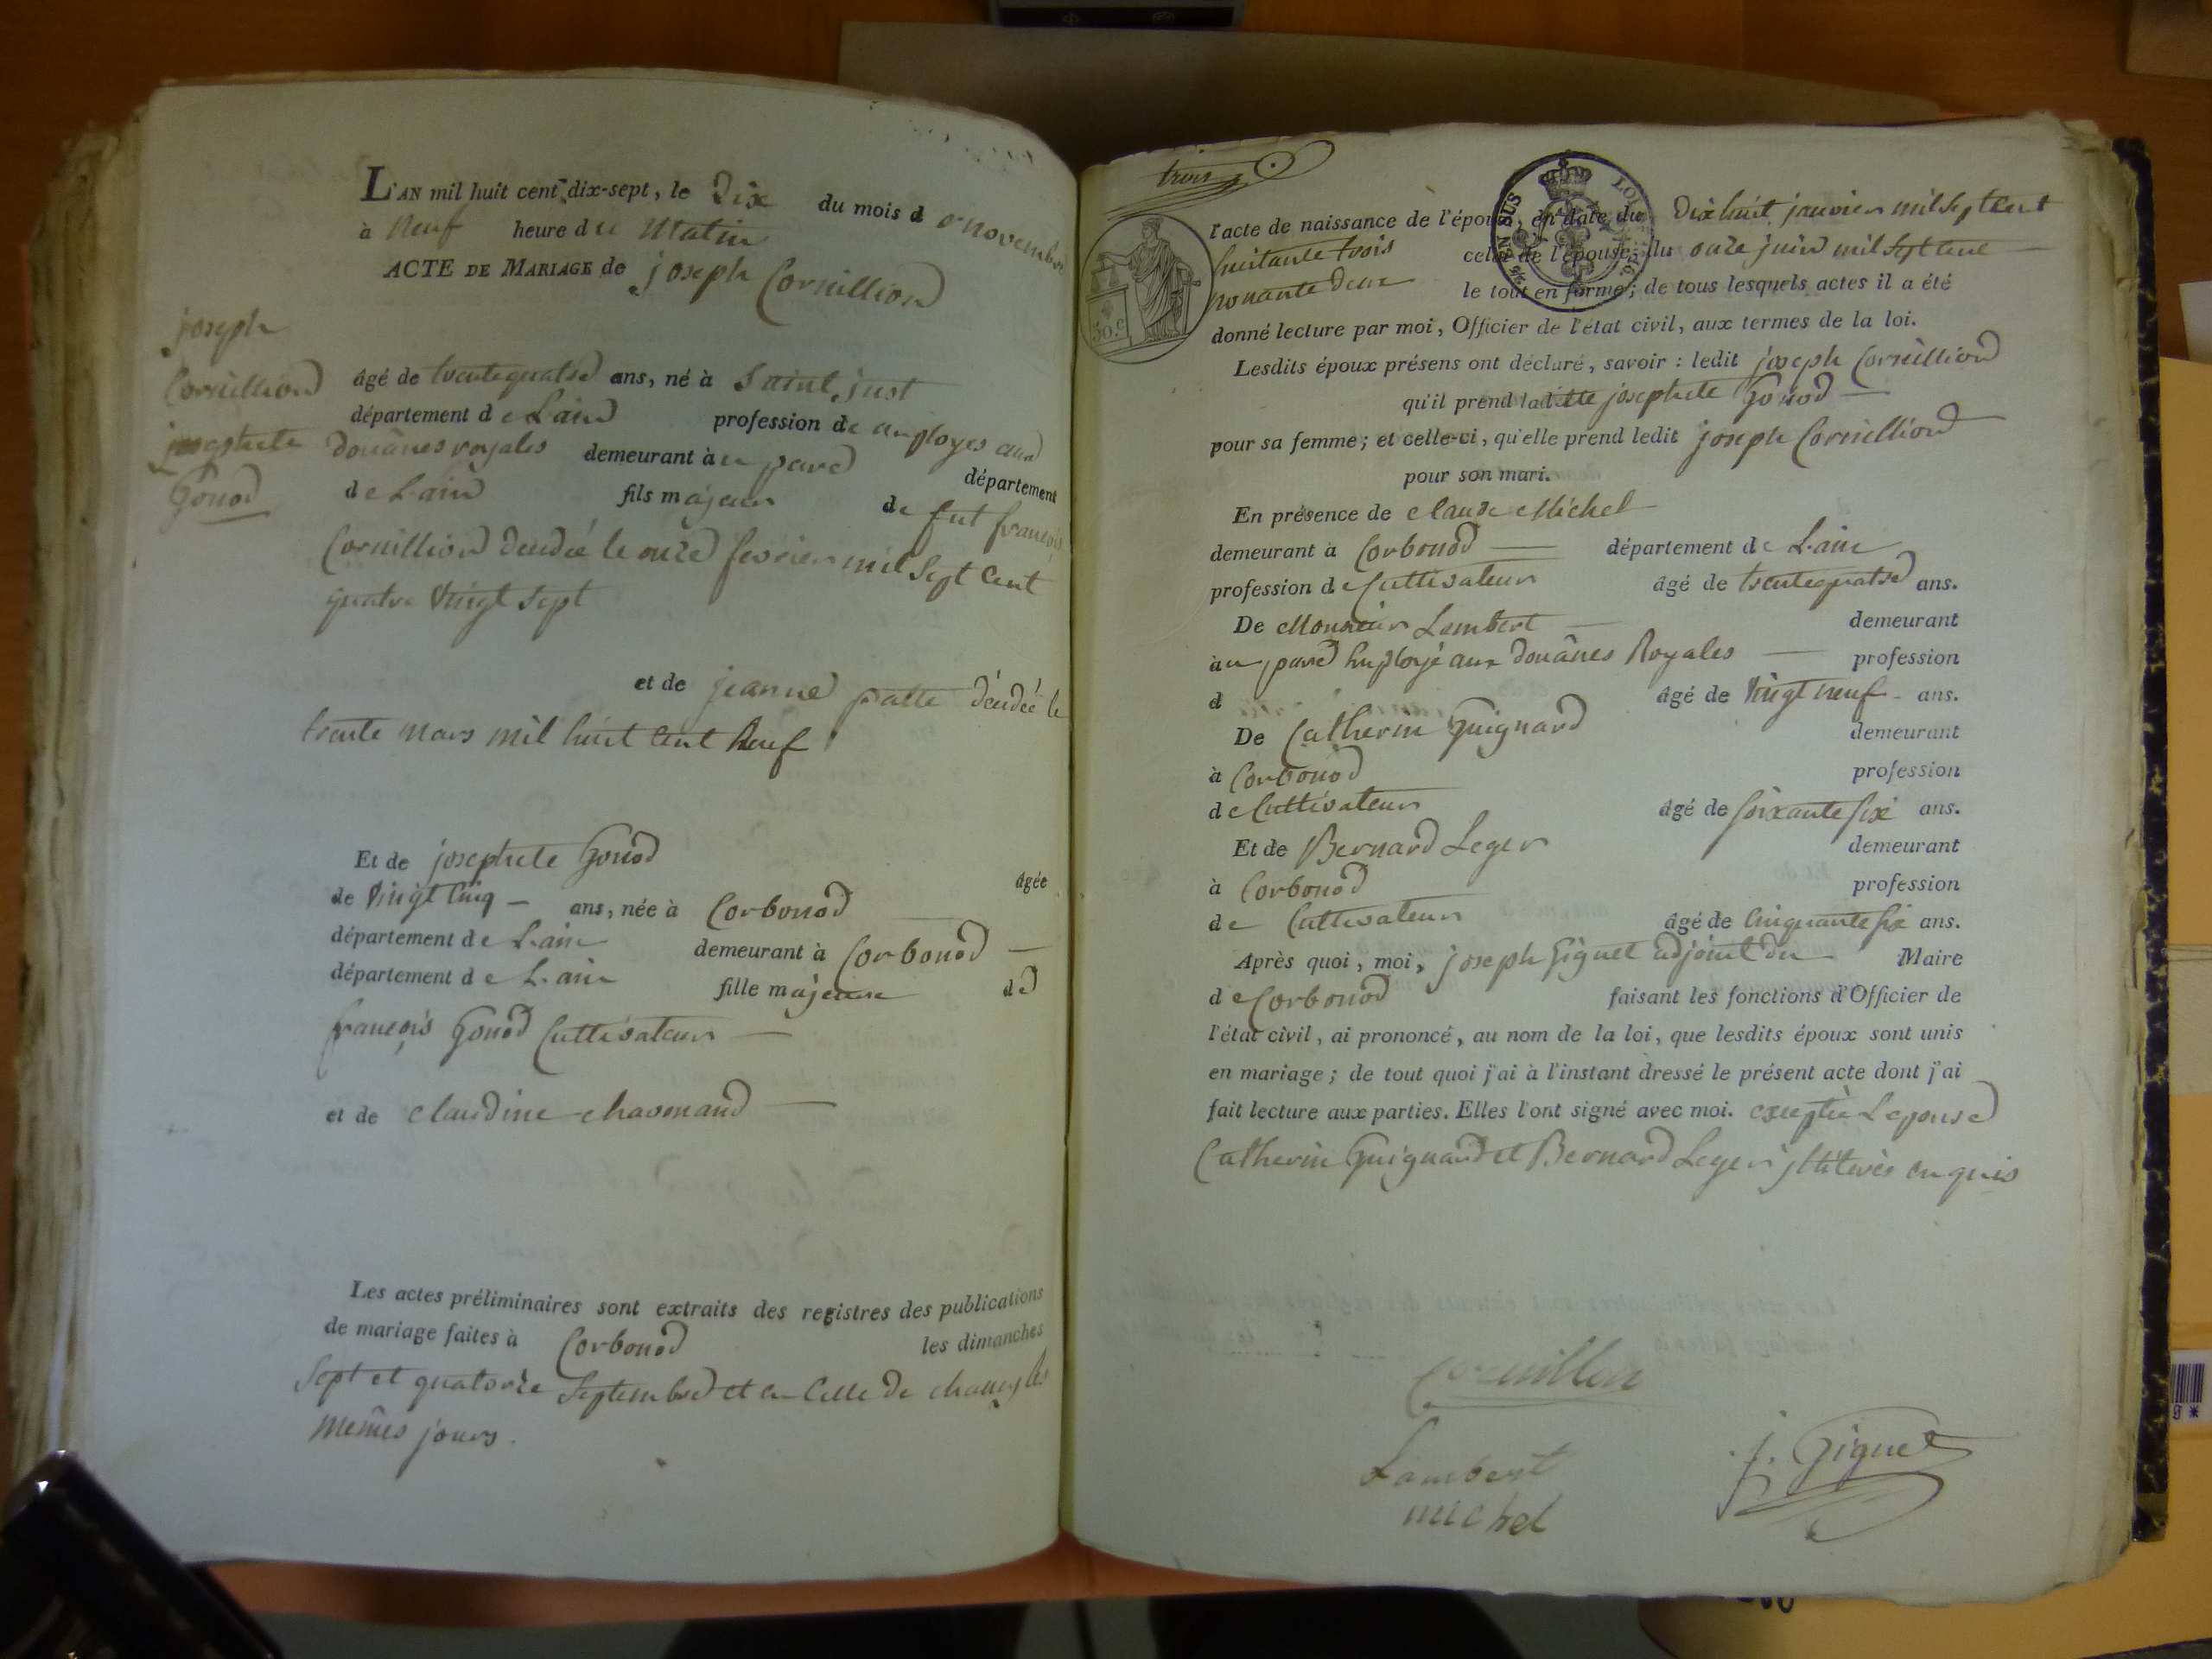 L'AN mil huit cent dix-sept, le Dix du mois d e novembre
à Neuf heure du Matin
ACTE DE MARIAGE de joseph Cornillion
joseph
Cornillion
josephete
Gonod
âgé de trentequatre ans, né à Saint just
département de L'ain profession de employes aux
douânes royales demeurant àu parc département
de L'ain fils majeur de fut françois
Cornillion décédé le onze fevrier mil sept cent
quatre vingt sept
et de jeanne patte décédée le
trente mars mil huit cent neuf
Et de josephete Gonod âgée
de vingt cinq — ans, née à Corbonod
département de L'ain demeurant à Corbonod —
département de L'ain fille majeure de
françois Gonod Cultivateur —
et de claudine chavonand —
Les actes préliminaires sont extraits des registres des publications
de mariage faites à Corbonod les dimanches
sept et quatorze septembre et en Celle de chanay les
mêmes jours.
trois
50.c
EN SUS
l'acte de naissance de l'époux, en date du Dixhuit janvier mil sept cent
huitante trois celui de l'épouse, du onze juin mil sept cent
nonante deux le tout en forme; de tous lesquels actes il a été
donné lecture par moi, Officier de l'état civil, aux termes de la loi.
Lesdits époux présens ont déclaré, savoir : ledit joseph Cornillion
qu'il prend ladite josephete Gonod —
pour sa femme; et celle-ci, qu'elle prend ledit joseph Cornillion
pour son mari.
En présence de claude Michel
demeurant à Corbonod — département de L'ain
profession de Cultivateur âgé de trentequatre ans.
De Monsieur Lambert — demeurant
àu parc Employé aux douânes Royales — profession
d âgé de vingt neuf - ans.
De Catherin Guignard demeurant
à Corbonod profession
de Cultivateur âgé de soixante six ans.
Et de Bernard Leger demeurant
à Corbonod profession
de Cultivateur âgé de Cinquante six ans.
Après quoi, moi, joseph Giguet adjoint du Maire
de Corbonod faisant les fonctions d'Officier de
l'état civil, ai prononcé, au nom de la loi, que lesdits époux sont unis
en mariage; de tout quoi j'ai à l'instant dressé le présent acte dont j'ai
fait lecture aux parties. Elles l'ont signé avec moi. exceptée Lepouse
Catherin Guignard et Bernard Leger jlliterés enquis
Cornillon
Lambert
michel
j. Giguet